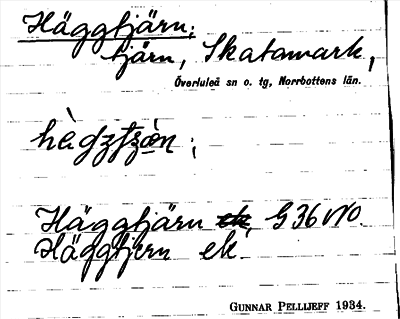 Häggtjärn;
tjärn, Skatamark,
Överluleå sn o. tg, Norrbottens län.
Häggtjärn G36NO.
Häggtjern ek.
GUNNAR PELLIJEFF 1934.